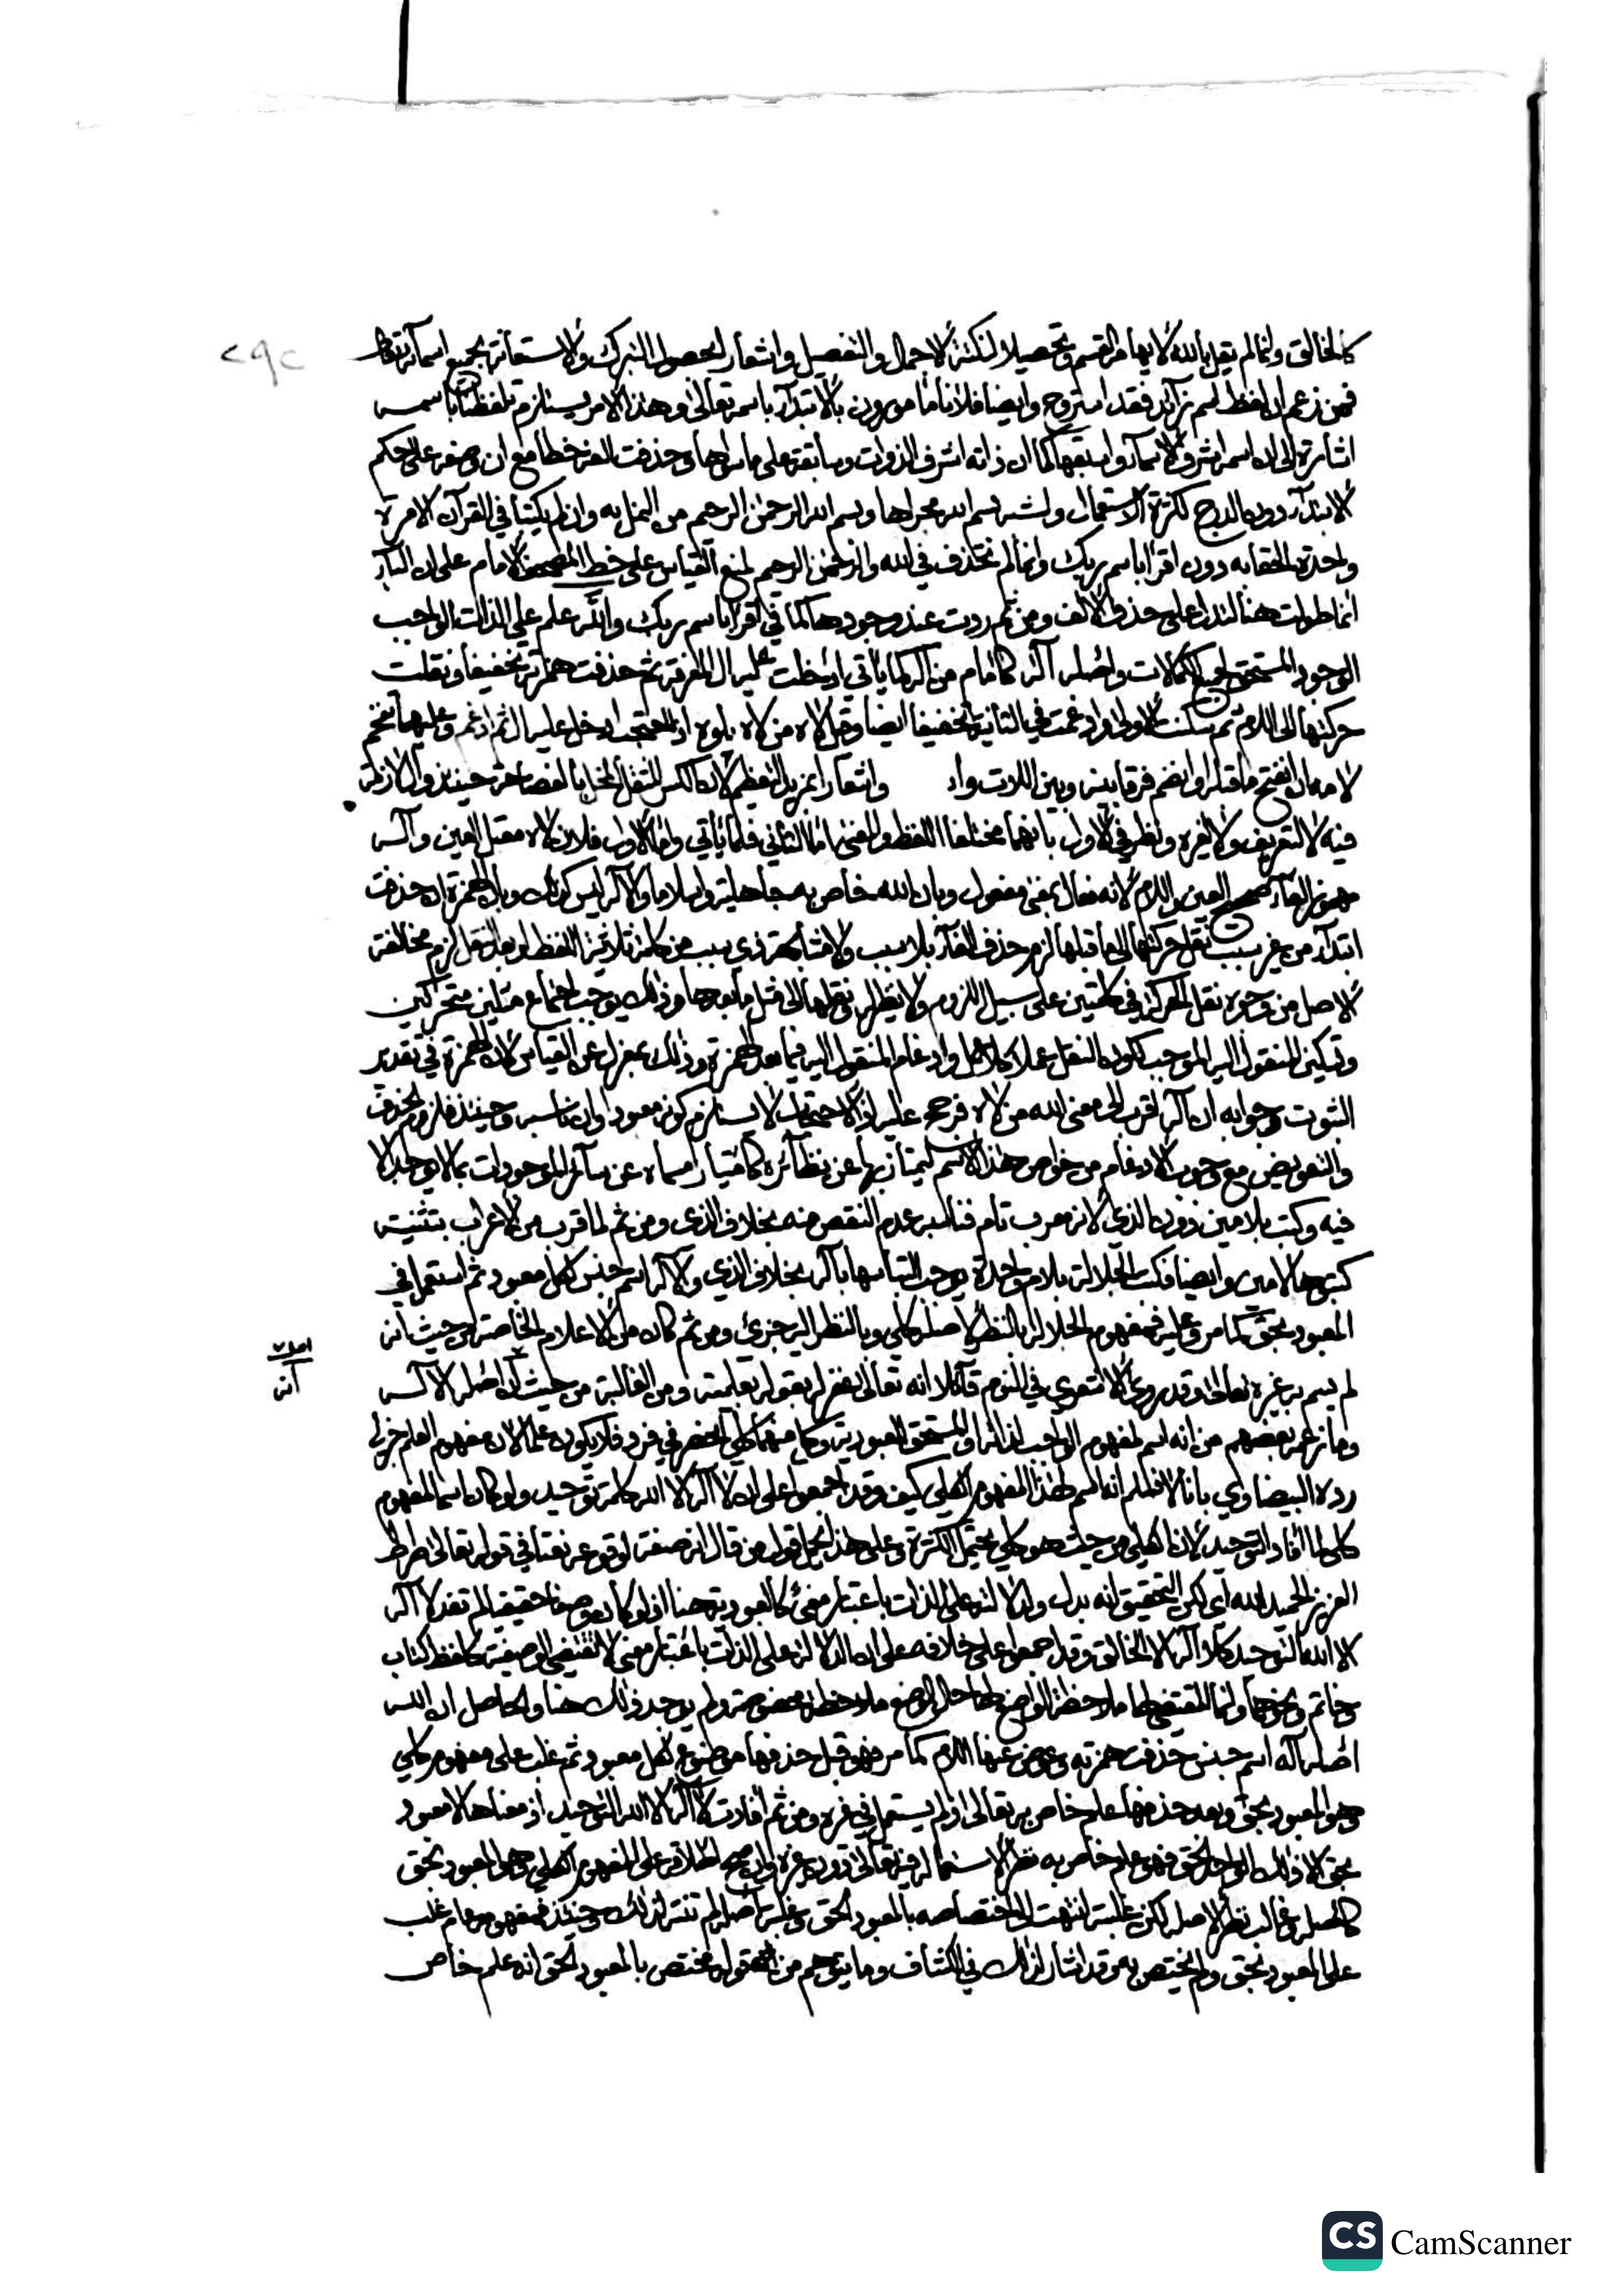 ٢٩٢
كالخالق وانما لم يقل بالله لايهامه القسم وتحصيلا لنكتة الاجمال والتفصيل واشعار الحصول التبرك والاستعانة بجميع اسمائه تعالى
فمن زعم ان لفظ اسم زائد فقد استروح وايضا فلانا مامورون بالابتداء باسمه تعالى وهذا الامر يستلزم تلفظنا باسمه
اشارة الى ان اسمه اشرف الاسماء واسبقها كما ان ذاته اشرف الذوات وسابقة على ما سواها وحذفت الفه خطا مع ان وضعه على حكم
الابتداء دون الدرج لكثرة الاستعمال ولشبه بسم الله مجراها وبسم الله الرحمن الرحيم من النمل به وان لم يكتبا في القرآن الا مرة
واحدة الحقا به دون اقرا باسم ربك وانما لم تحذف في الله والرحمن الرحيم لمنع القياس على خط المصحف الامام على ان الباء
انما طولت هنا لتدل على حذف الالف ومن ثم ردت عند وجودها كما في اقرا باسم ربك والله علم على الذات الواجب
الوجود المستحق لجميع الكمالات واصله اله كامام من اله كما ياتي ادخلت عليه ال المعرفة ثم حذفت همزته تخفيفا ونقلت
حركتها الى اللام ثم سكنت الاولى وادغمت في الثانية تخفيفا ايضا وقيل لاه من لاه يلوه اذا احتجب ادخل عليه ال ثم ادغم وعليهما تفخم
لامه ان انفتح ما قبله او انضم فرقا بينه وبين اللات واشعارا بمزيد التعظيم لان الكسر للتنقل
فيه لا لتعريف ولا لغيره ونظر في الاول بانهما مختلفا اللفظ والمعنى اما الثاني فلما ياتي واما الاول فلان لاه معتل العين واله
مهموز الفاء صحيح العين واللام لانه فعال بمعنى مفعول وبان الله خاص به جاهلية واسلاما والاله ليس كذلك وبان الهمزة ان حذفت
ابتداء من غير سبب نقل حركتها الى ما قبلها لزم حذف الفاء بلا سبب ولا مشابهة ذي سبب من كلمة ثلاثية اللفظ او بعد نقل لزم مخالفة
الاصل من وجوه نقل الحركة في كلمتين على سبيل اللزوم ولا نظير له ونقلها الى مثل ما بعدها وذلك يوجب اجتماع مثلين متحركين
وتسكين المنقول اليه الموجب لكون النقل عملا كلا عمل وادغام المنقول اليه فيما بعد الهمزة وذلك بمعزل عن القياس لان الهمزة في تقدير
الثبوت وجوابه ان اله اقرب الى معنى الله من لاه فرجح عليه اذ الاحتجاب لا يستلزم كونه معبودا وان ناسبه وحينئذ فلزوم الحذف
والتعويض مع وجوب الادغام من خواص هذا الاسم ليمتاز بها عن نظائره كامتياز مسماه عن سائر الموجودات بما لا يوجد الا
فيه وكتب بلامين دون الذي لانه معرب تام فناسبه عدم النقص منه بخلاف الذي ومن ثم لما قرب من الاعراب بتثنيته
كتبوها لامين وايضا فكتب الجلالة بلام واحدة يوجب التباسها باله بخلاف الذي والاله اسم جنس لكل معبود ثم استعمل في
المعبود بحق كما مر وعليه فمفهوم الجلالة بالنظر لاصله كلي وبالنظر اليه جزئي ومن ثم كان من الاعلام الخاصة من حيث انه
لم يسم به غيره تعالى وقد روي الاشعري في النوم قائلا انه تعالى غفر له بقوله بعلميته ومن الغالبة من حيث ان اصله الاله
وما زعمه بعضهم من انه اسم لمفهوم الواجب لذاته او المستحق للعبودية وكل منهما كلي انحصر في فرد فلا يكون علما لان مفهوم العلم جزئي
رده البيضاوي بانا لا نسلم انه اسم لهذا المفهوم الكلي كيف وقد اجمعوا على ان لا اله الا الله كلمة توحيد ولو كان اسما لمفهوم
كلي لما افاد التوحيد لان الكلي من حيث هو كلي يحتمل الكثرة وعلى هذا يحمل قول من قال انه صفة لوقوعه نعتا في قوله تعالى صراط
العزيز الحميد الله اي لكن التحقيق انه بدل ولدلالته على الذات باعتبار معنى كالعبودية هنا اذ لو كان وصفا حقيقيا لم تفد لا اله
الا الله التوحيد كلا اله الا الخالق وقد اجمعوا على خلافه على ان الدلالة على الذات باعتبار معنى لا تقتضي الوصفية كلفظ كتاب
وخاتم ونحوهما وانما المقتضي لها ملاحظة الواضع لها حال الوضع ملاحظة مخصوصة ولم يوجد ذلك هنا والحاصل ان الله
اصله اله اسم جنس حذفت همزته وعوض عنها اللام كما مر فهو قبل حذفها موضوع لكل معبود ثم غلب على مفهوم كلي
وهو المعبود بحق وبعد حذفها علم خاص به تعالى اذ لم يستعمل في غيره ومن ثم افادت لا اله الا الله التوحيد اذ معناها لا معبود
بحق الا ذلك الواحد الحق فهو علم خاص به نظرا لاستعماله فيه تعالى دون غيره وان صح اطلاقه على المفهوم الكلي وهو المعبود بحق
كاصله وغالب نظرا لاصله لكن غلبته انتهت الى اختصاصه بالمعبود الحق وغلبة اصله لم تنته لذلك وحينئذ فمفهومه عام غلب
على المعبود بحق ولم يختص به وقد اشار لذلك في الكشاف وما يتوهم من قوله مختص بالمعبود الحق انه علم خاص
CS CamScanner